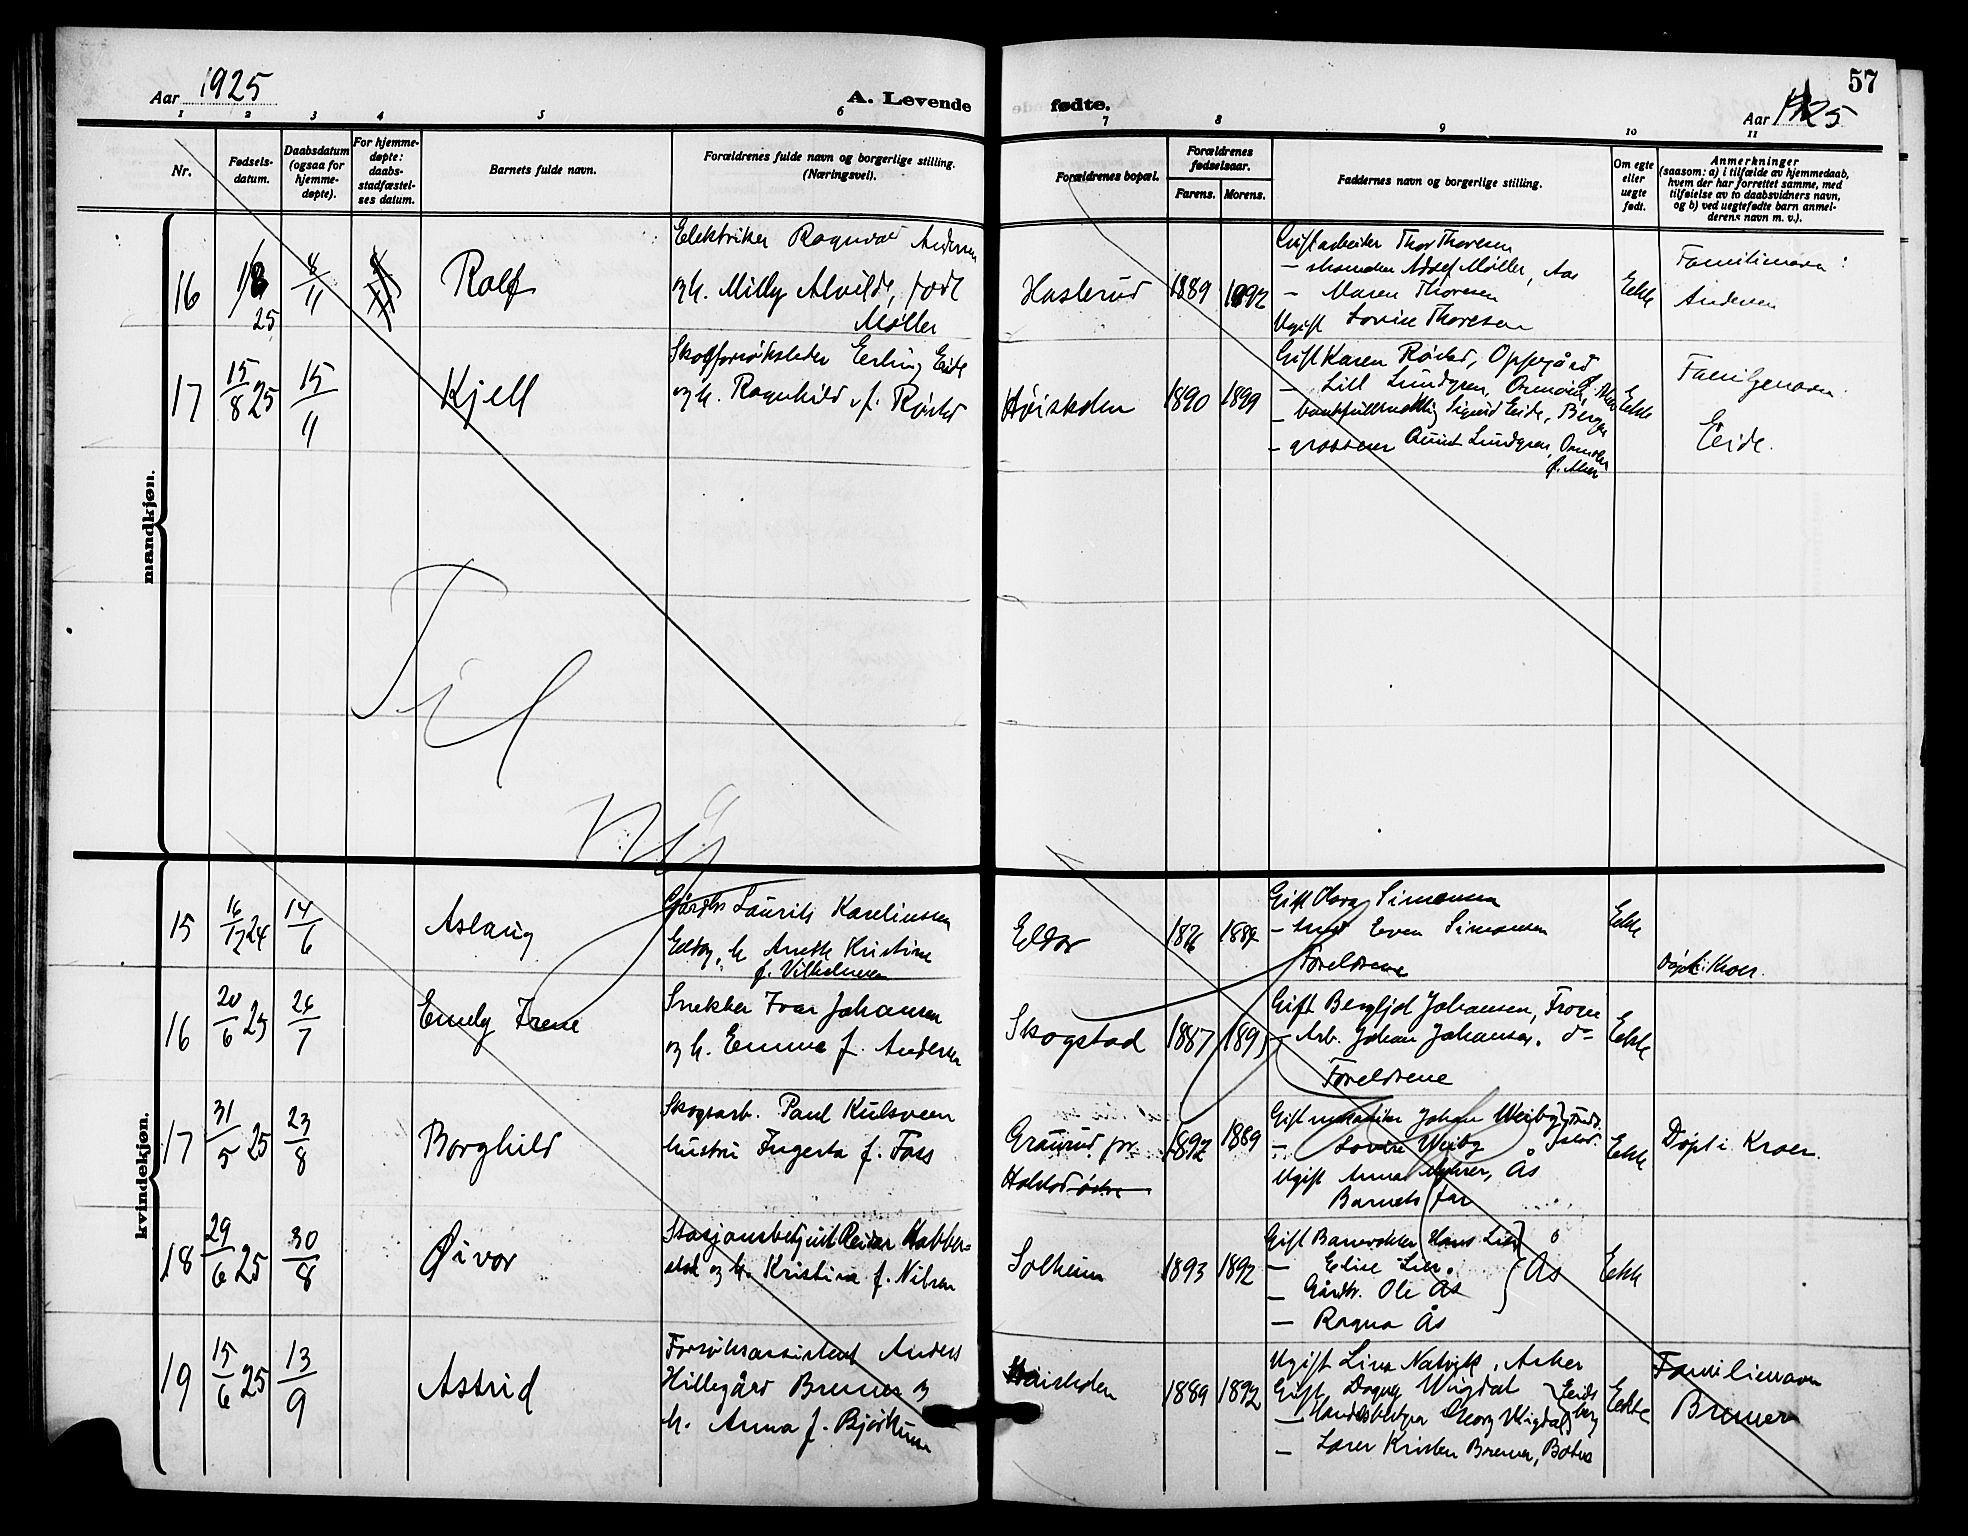 Aar 1925
A. Levende
fødte.
57
Aar 1925
1 2 3 4 5 6 7 8 9 10 11
Nr.
Fødsels-
datum.
Daabsdatum
(ogsaa for
hjemme-
døpte).
For hjemme-
døpte:
daabs-
stadfæstel-
ses datum.
Barnets fulde navn.
Forældrenes fulde navn og borgerlige stilling.
(Næringsvei).
Forældrenes bopæl.
Forældrenes
fødselsaar.
Farens. Morens.
Faddernes navn og borgerlige stilling.
Om egte
eller
uegte
født.
Anmerkninger
(saasom: a) i tilfælde av hjemmedaab,
hvem der har forrettet samme, med
tilføielse av to daabsvidners navn,
og b) ved uegtefødte barn anmel-
derens navn m. v.).
mandkjøn.
16
25
8/11
Rolf
Elektriker Ragnvald Andersen
og h. Milly Alvilde, født
Møller
Haslerud
1889
1892
Gift arbeider Thor Thoresen
— Adolf Møller, Aas
— Maren Thoresen
Ugift Lovise Thoresen
Ekte
Familienavn:
Andersen
17
15/8 25
15/11
Kjell
Skogforsøksleder Erling Eide
og h. Ragnhild f. Røsted
Høiskolen
1890
1899
Gift Karen Røsted, Oppegård
— Lill Lundgren, Ormøen, Ø. Aker
— Sigurd Eide, Bergen
— grosserer Lundgren, Ormøen
Ø. Aker
Ekte
Familienavn:
Eide.
Til
Ny
kvindekjøn.
15
16/12 24
14/6
Aslaug
Gårdbr. Laurits Karelinssen
Eldor, h. Anette Kristine
f. Vilhelmsen
Eldor
Gift Olava Simonsen
— Even Simonsen
Foreldrene
Ekte
Døpt i Kroer.
16
20/6 25
26/7
Emely Irene
Snekker Ivar Johansen
og h. Emma f. Andersen
Skogstad
1887
1895
Gift Bergljot Johansen, Froen
— Arb. Johan Johansen. do
Foreldrene
Ekte
17
31/5 25
23/8
Borghild
Skogsarb. Paul Kulsveen
hustru Ingerta f. Foss
Graurud pr.
Holstad
1892
1889
Gift Johan Weiby
— Lovise Weiby
Ugift Anna Myhrer, Ås
Barnets far
Ekte
Døpt i Kroer.
18
29/6 25
30/8
Øivor
Stasjonsbetjent Reidar Kabber-
stad og h. Kristine f. Nilsen
Solheim
1893
1892
Gift Banevokter Hans Lier
— Elise Lier.
— Gårdbr. Ole Ås
— Ragna Ås
Ås
Ekte
19
15/6 25
13/9
Astrid
Forsøksassistent Anders
Hillegård Bremer og
h. Anna f. Bjerknes
Høiskolen
1889
1892
Ugift Lina Natvik, Asker
Gift Dagny Wigdal
— Handelsbestyrer Georg Wigdal
Eidsberg
— Lærer Kristen Bremer, Botne
Ekte
Familienavn
Bremer